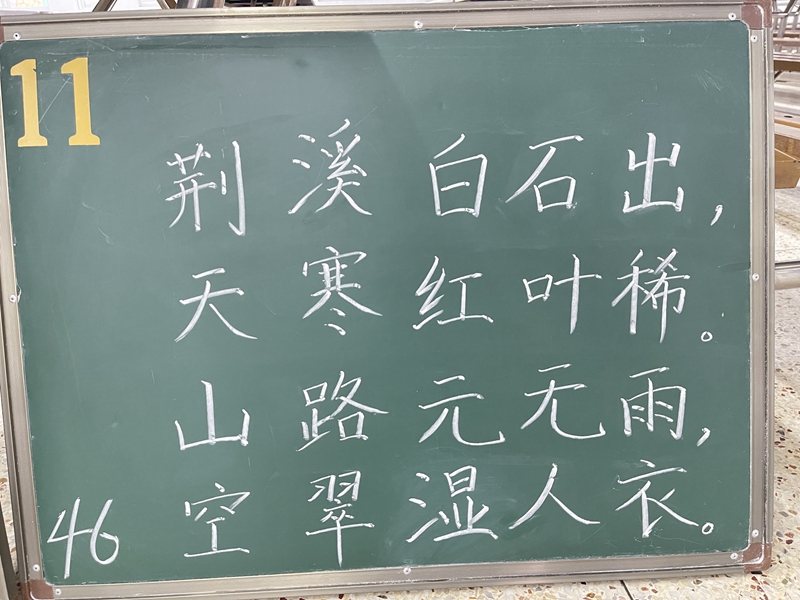 11
荆溪白石出，
天寒红叶稀。
山路元无雨，
空翠湿人衣。
46